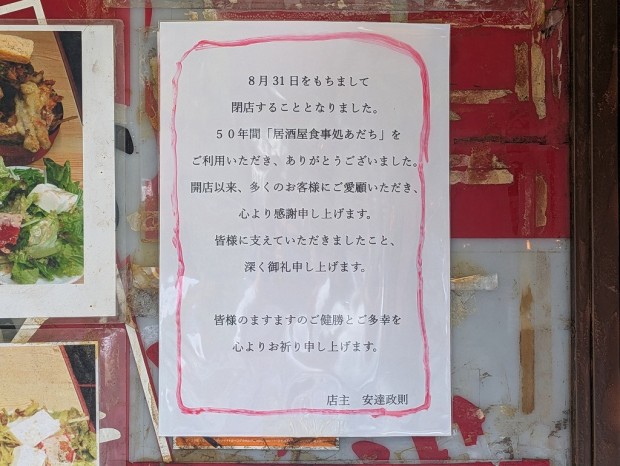 ８月31日をもちまして
閉店することとなりました。
５０年間「居酒屋食事処あだち」を
ご利用いただき、ありがとうございました。
開店以来、多くのお客様にご愛顧いただき、
心より感謝申し上げます。
皆様に支えていただきましたこと、
深く御礼申し上げます。
皆様のますますのご健勝とご多幸を
心よりお祈り申し上げます。
店主　安達政則